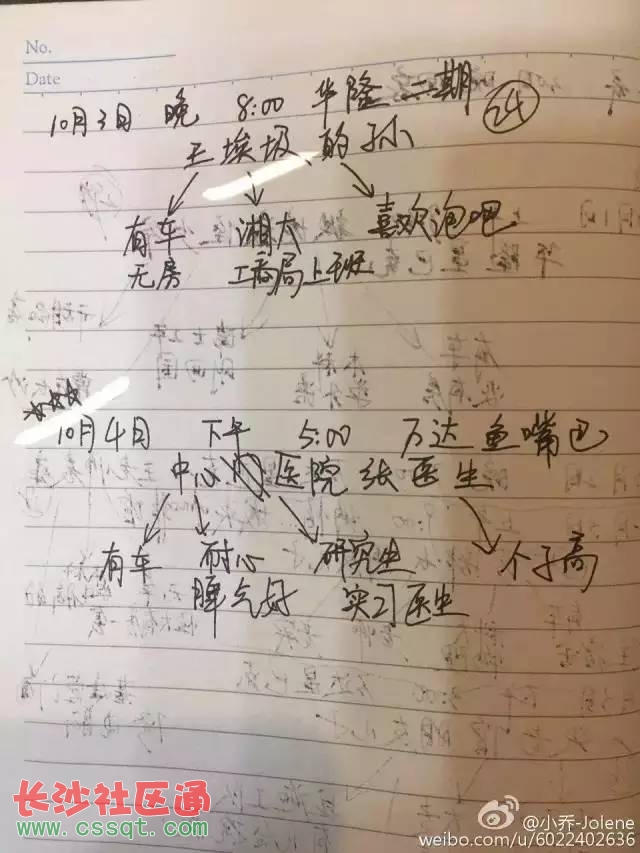 No.
Date
10月3日 晚 8:00 华隆二期 24
王埃圾的孙
有车 湘大 喜欢泡吧
无房 工商局上班
10月4日 下午 5:00 万达鱼嘴巴
中心 医院张医生
有车 耐心 研究生 个子高
脾气好 实习医生
长沙社区通
www.cssqt.com
@小乔-Jolene
weibo.com/u/6022402636